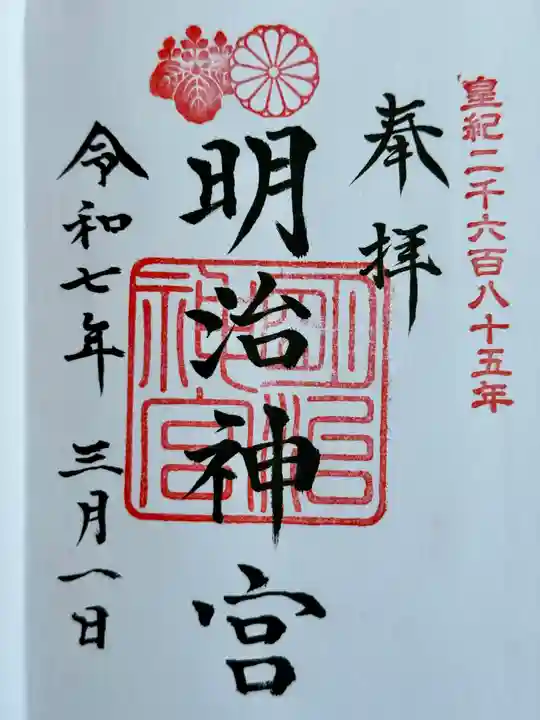 皇紀二千六百八十五年
奉拝
明治神宮
明治神宮
令和七年三月一日